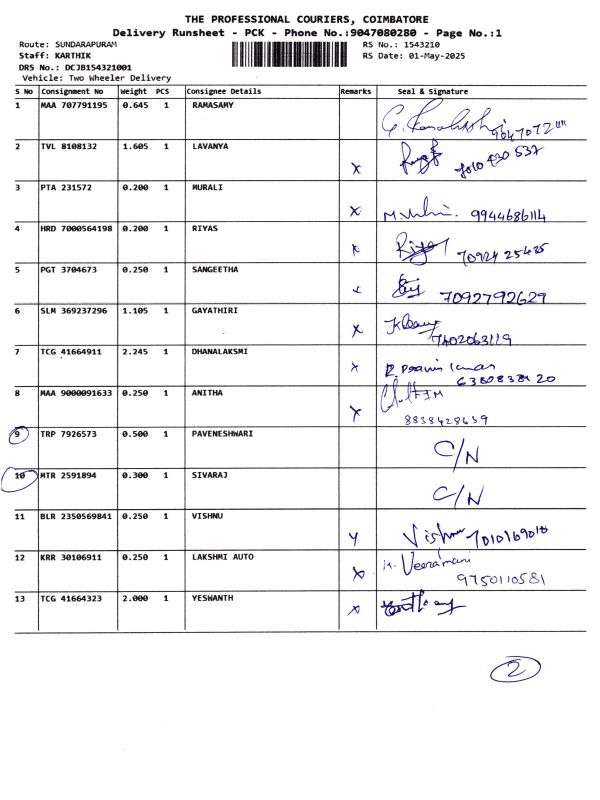 THE PROFESSIONAL COURIERS, COIMBATORE
Delivery Runsheet - PCK - Phone No.:9047080280 - Page No.:1
Route: SUNDARAPURAM RS No.: 1543210
Staff: KARTHIK RS Date: 01-May-2025
DRS No.: DCJB1S4321001
Vehicle: Two Wheeler Delivery
S No Consignment No Weight PCS Consignee Details Remarks Seal & Signature
1 MAA 707791195 0.645 1 RAMASAMY
2 TVL 8108132 1.605 1 LAVANYA x 7010430537
3 PTA 231572 0.200 1 MURALI x 9944686114
4 HRD 7000564198 0.200 1 RIYAS x Riyas 7092425425
5 PGT 3704673 0.250 1 SANGEETHA x 7092792629
6 SLM 369237296 1.105 1 GAYATHIRI x 7402063119
7 TCG 41664911 2.245 1 DHANALAKSMI x
6380838420
8 MAA 9000091633 0.250 1 ANITHA x
8838428639
9 TRP 7926573 0.500 1 PAVENESHWARI C/N
10 MTR 2591894 0.300 1 SIVARAJ C/N
11 BLR 2350569841 0.250 1 VISHNU Vishnu
12 KRR 30106911 0.250 1 LAKSHMI AUTO x Veeramani
9750110581
13 TCG 41664323 2.000 1 YESWANTH x
2